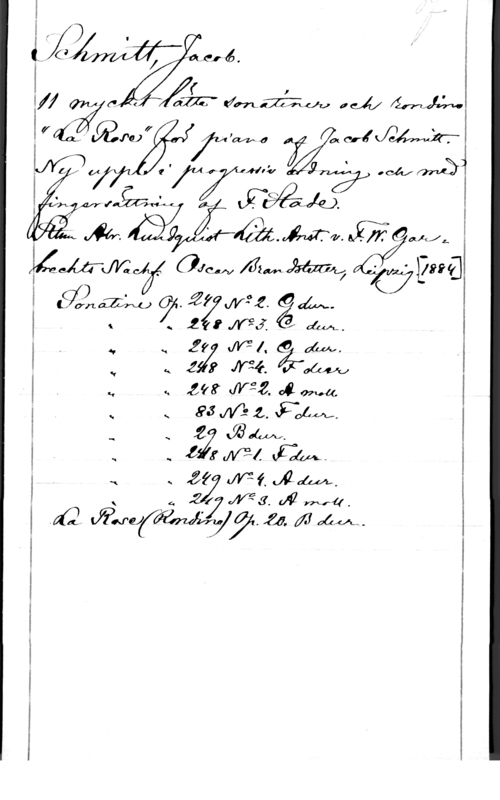 Schmitt, Jacob.
11 mycket lätta sonatiner och rondino
"La Rose" för piano af Jacob Schmitt.
Ny uppl. i progressiv ordning och med
fingersättning af F. Stade.
Sthm Abr. Lundquist Lith. Anst. v. F. W. Gar-
brechts Nachf. Oscar Brandstetter, Leipzig [1884]
Sonatine Op. 249 No 2. G dur.
" " 248 No 3. C dur.
" " 249 No 1. G dur.
" " 248 No 4. F dur
" " 248 No 2. A moll
" " 83 No 2. F dur.
" " 29 B dur.
" " 248 No 1. F dur.
" " 249 No 4. A dur.
" " 249 No 3. A moll.
La Rose (Rondino) Op. 20. B dur.